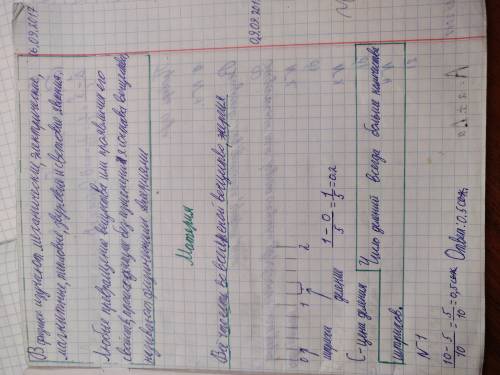 6.09.2017
В физике изучают механические, электрические,
магнитные, тепловые, звуковые и световые явления.
Любые превращения вещества или проявления его
свойств, происходящие без изменения состава вещества,
называют физическими явлениями
09.09.201
Материя
Всё что есть во вселенной вещество энергия
0 1 2
штрихи деления
1-0/5=1/5=0.2
C-Цена деления
Число делений всегда больше количества
штрихов.
N-1
10-5/10=5/10=0,5см Ответ:0.5см.